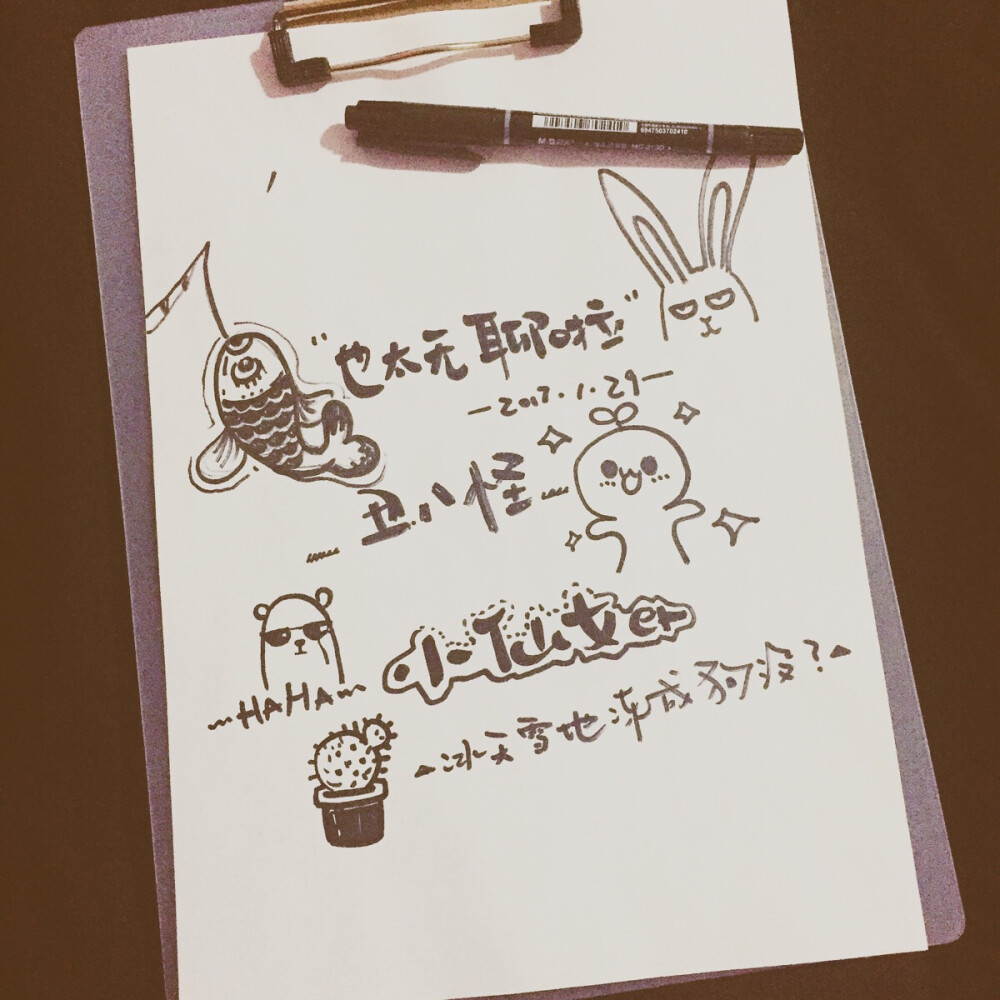 6947503702416
"也太无聊啦"
-2017.1.29-
丑八怪
小仙女er
~HAHA~
冰天雪地冻成狗没?